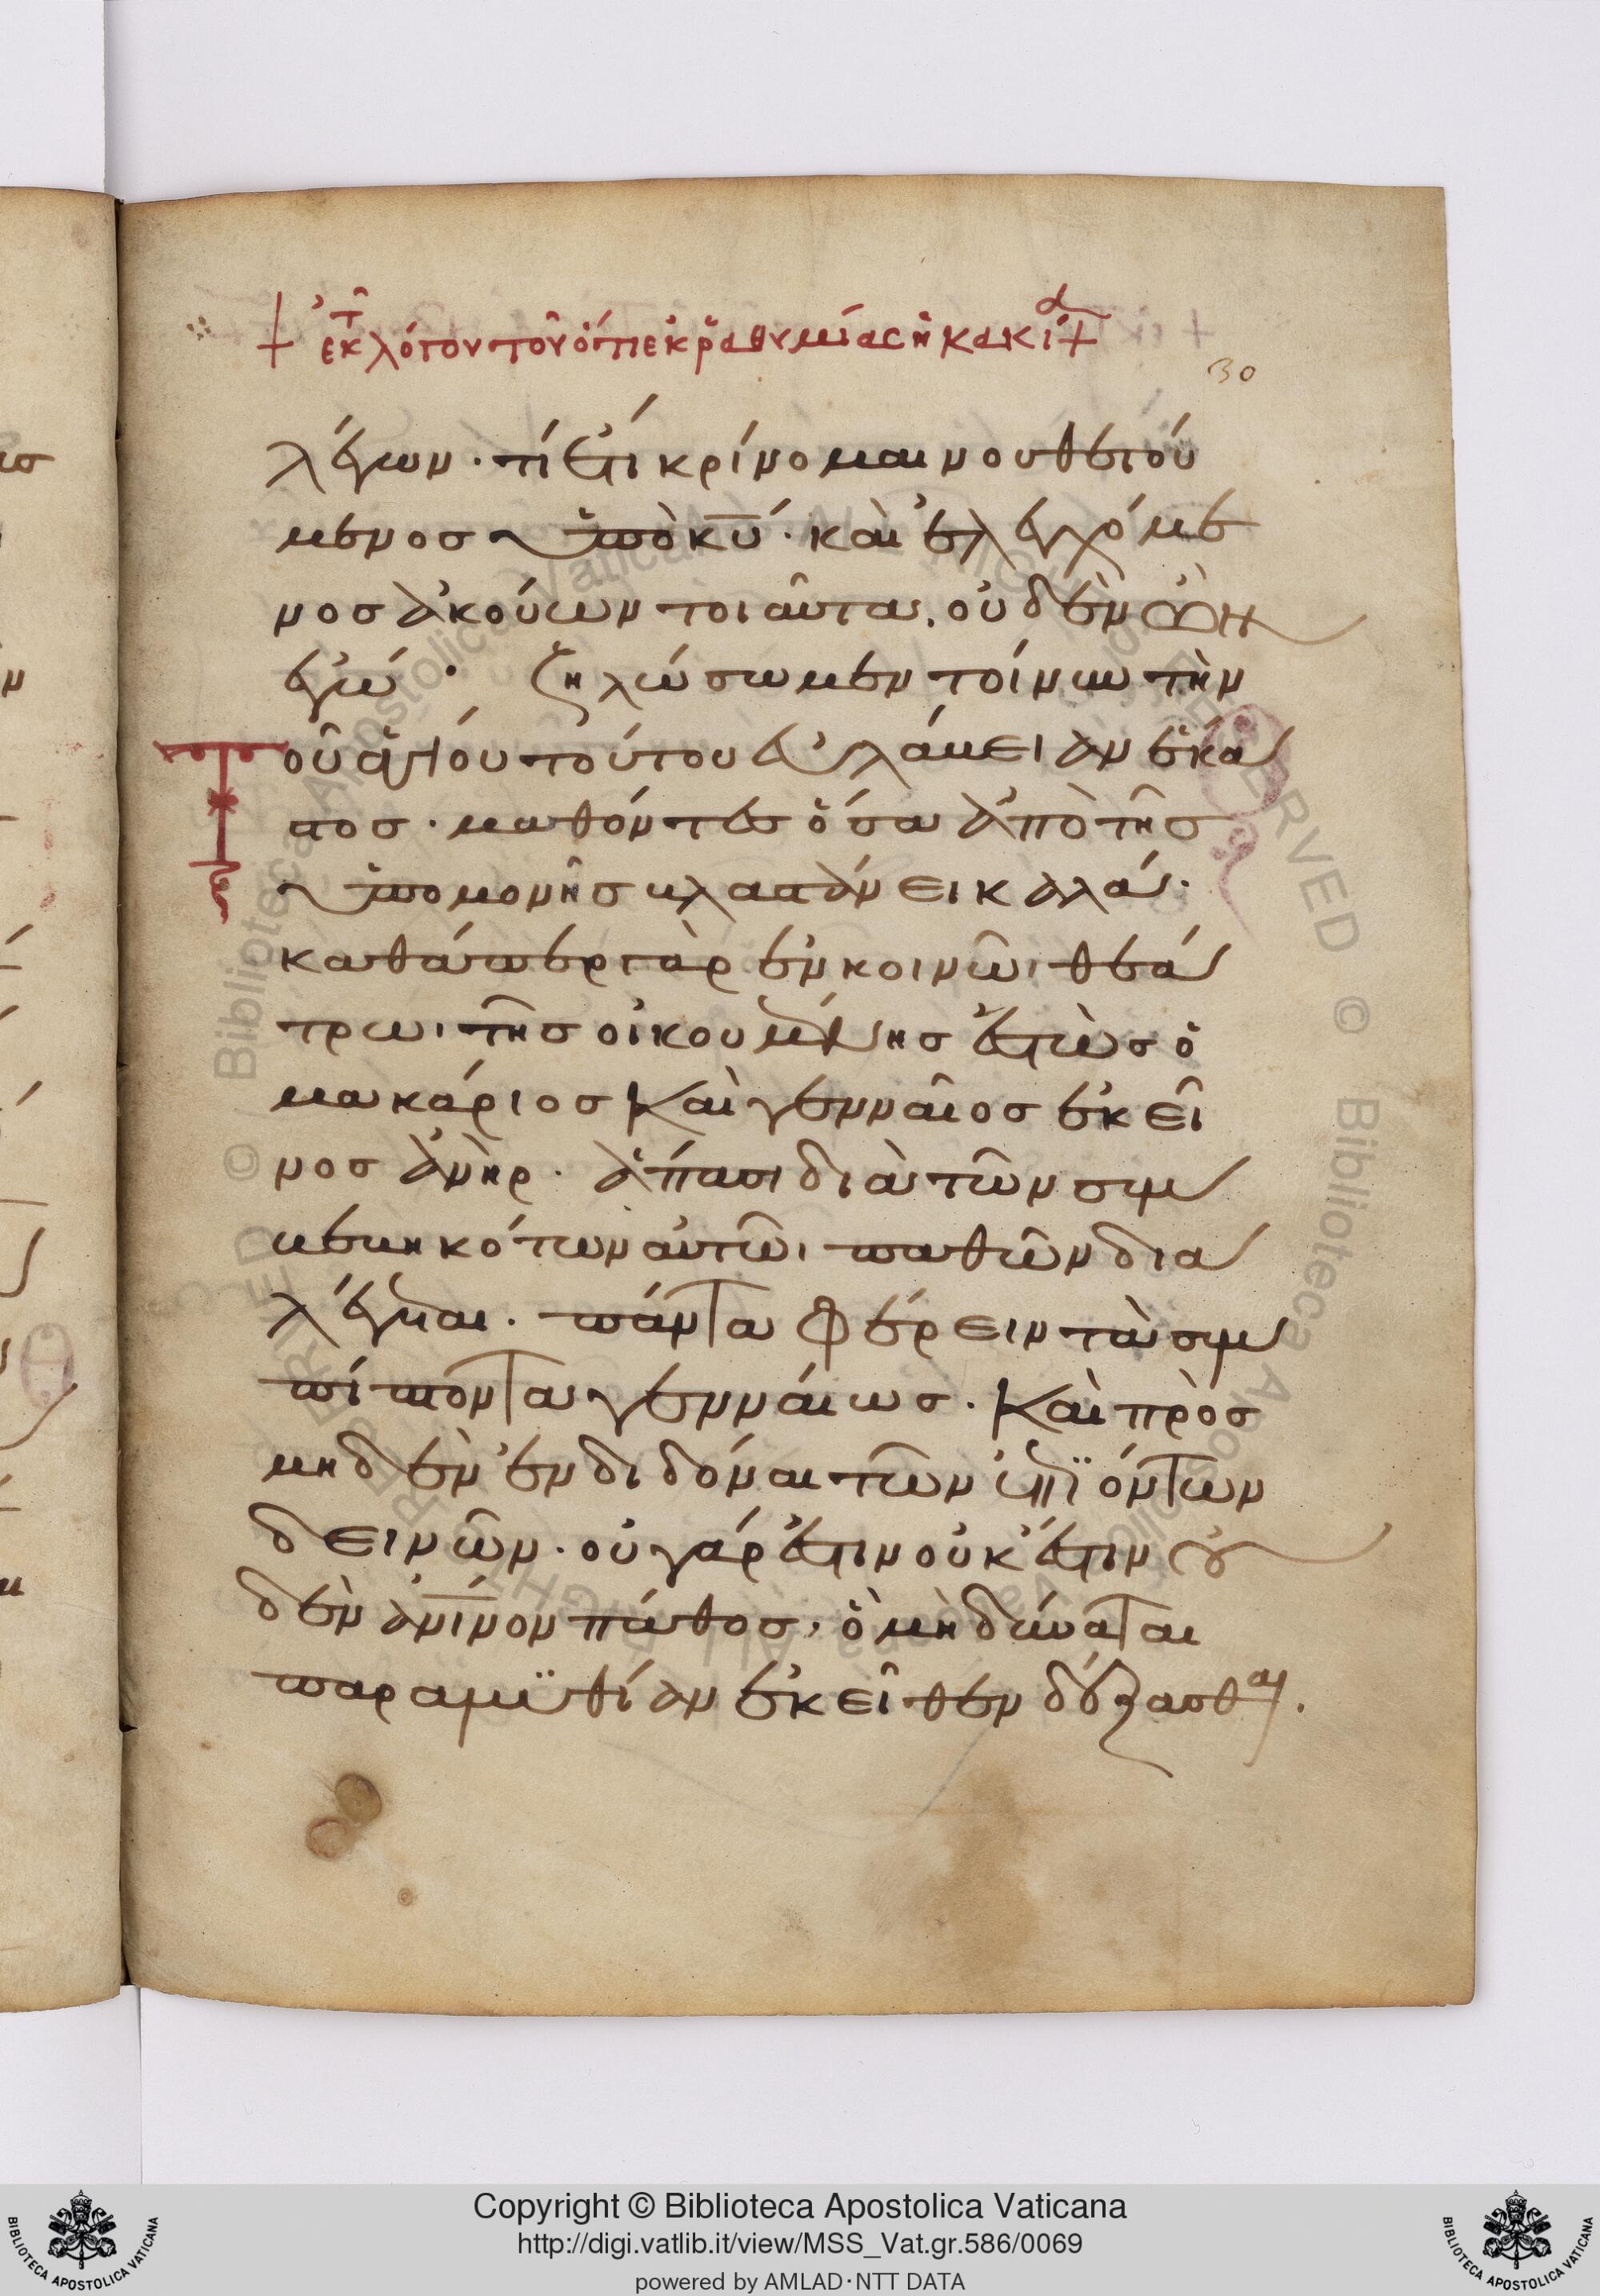 + ἐκ τ λόγου τοῦ ὅτι ἐκ ῥαθυμίας ἡ κακία +
30
λέγων· τί ἔτι κρίνομαι νουθετού
μενος ὑπὸ κυ· καὶ ἐλεγχόμε
νος ἀκούων τοιαῦτα, οὐδὲν ὢν
ἐγώ· ζηλώσωμεν τοίνυν τὴν
Τοῦ ἁγίου τούτου εὐλάβειαν ἕκα
στος· μαθόντες ὅσα ἀπὸ τῆς
ὑπομονῆς βλαστάνει καλά·
καθάπερ γὰρ ἐν κοινῶι θεά
τρωι τῆς οἰκουμένης ἑστὼς ὁ
μακάριος καὶ γενναῖος ἐκεῖ
νος ἀνήρ· ἅπασι διὰ τῶν συμ
βεβηκότων αὐτῶι παθῶν δια
λέγεται· πάντα φέρειν τὰ συμ
πίπτοντα γενναίως· καὶ πρὸς
μηδὲν ἐνδιδόναι τῶν ἐπϊόντων
δεινῶν· οὐ γάρ ἐστιν οὐκ ἔστιν οὐ
δὲν ἀνινον πάθος· ὃ μὴ δύναται
παραμυθίαν ἐκεῖθεν δέξασθαι.
Copyright © Biblioteca Apostolica Vaticana
http://digi.vatlib.it/view/MSS_Vat.gr.586/0069
powered by AMLAD·NTT DATA
BIBLIOTECA APOSTOLICA VATICANA
BIBLIOTECA APOSTOLICA VATICANA